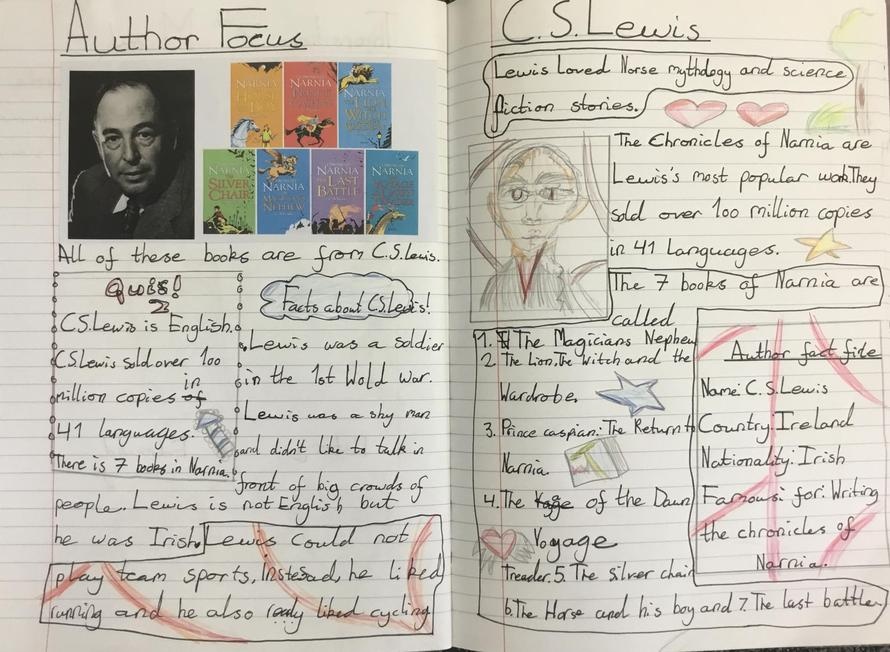 Author Focus
NARNIA
NARNIA
NARNIA
SILVER
CHAIR
NARNIA
NEPHEW
NARNIA
LAST
BATTLE
All of these books are from C.S.Lewis.
Quiz!
C.S.Lewis is English.
CS Lewis Sold over 100
million copies of in
41 languages.
There is 7 books in Narnia.
Facts about C.S.Lewis!
Lewis was a soldier
in the 1st Wold war.
Lewis was a shy man
and didn't like to talk in
front of big crowds of
people. Lewis is not English but
he was Irish. Lewis could not
play team sports, Instesad, he liked
running and he also really liked cycling
C.S.Lewis
Lewis Loved Norse mythology and science
fiction stories.
The Chronicles of Narnia are
Lewis's most popular work.They
sold over 100 million copies
in 41 languages.
The 7 books of Narnia are
called
1. The Magicians Nephew
2. The Lion,The witch and the
Wardrobe.
3. Prince caspian: The Return to
Narnia.
4. The of the Dawn
Voyage
Treader. 5. The silver chair
6. The Horse and his boy and 7. The last battle
Author fact file
Name: C.S.Lewis
Country: Ireland
Nationality: Irish
Famous: for: Writing
the chronicles of
Narnia.